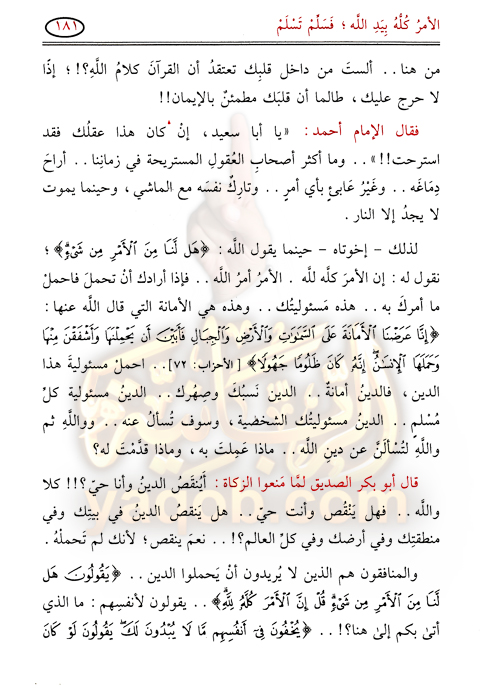 الأمرُ كُلُّهُ بِيَدِ اللَّه ؛ فَسَلِّمْ تَسْلَمْ
١٨١
من هنا.. ألستَ من داخل قلبِك تعتقدُ أن القرآنَ كلامُ اللَّهِ؟!! ؛ إذًا
لا حرج عليك، طالما أن قلبَك مطمئنٌ بالإيمان!!
فقال الإمام أحمد: «يا أبا سعيد، إنْ كان هذا عقلُك فقد
استرحت!!».. وما أكثر أصحابِ العُقولِ المستريحة في زمانِنا.. أراحَ
دِمَاغَه.. وغَيْرُ عَابئٍ بأي أمرٍ.. وتارِكٌ نفسَه مع الماشي، وحينما يموت
لا يجدُ إلا النار.
لذلك - إخوتاه - حينما يقول اللَّه: ﴿هَل لَّنَا مِنَ ٱلْأَمْرِ مِن شَيْءٍ﴾ ؛
نقول له: إن الأمرَ كلَّه للَّه . الأمرُ أمرُ اللَّه.. فإذا أرادك أنْ تحملَ فاحملْ
ما أمركَ به.. هذه مَسئوليتُك.. وهذه هي الأمانة التي قال اللَّه عنها:
﴿إِنَّا عَرَضْنَا ٱلْأَمَانَةَ عَلَى ٱلسَّمَٰوَٰتِ وَٱلْأَرْضِ وَٱلْجِبَالِ فَأَبَيْنَ أَن يَحْمِلْنَهَا وَأَشْفَقْنَ مِنْهَا
وَحَمَلَهَا ٱلْإِنسَٰنُ إِنَّهُ كَانَ ظَلُومًا جَهُولًا﴾ [الأحزاب: ٧٢].. احملْ مسئوليةَ هذا
الدين، فالدينُ أمانةٌ.. الدين نَسبُكَ وصِهْرُك.. الدينُ مسئولية كلِّ
مُسْلمٍ.. الدينُ مسئوليتُك الشخصية، وسوف تُسألُ عنه.. وواللَّهِ ثم
واللَّهِ لتُسْألَنَّ عن دينِ اللَّه.. ماذا عَمِلتَ به، وماذا قدَّمْتَ له؟
قال أبو بكر الصديق لمَّا مَنعوا الزكاة: أيُنقَصُ الدينُ وأنا حيّ؟!! كلا
واللَّه.. فهل يَنْقُص وأنت حيّ.. هل يَنقصُ الدينُ في بيتِك وفي
منطقتِك وفي أرضك وفي كلِّ العالم؟!.. نعمَ ينقص؛ لأنك لم تَحملْهُ.
والمنافقون هم الذين لا يُريدون أنْ يَحملوا الدين.. ﴿يَقُولُونَ هَل
لَّنَا مِنَ ٱلْأَمْرِ مِن شَيْءٍ قُلْ إِنَّ ٱلْأَمْرَ كُلَّهُ لِلَّهِ﴾.. يقولون لأنفسِهم: ما الذي
أتىٰ بكم إلىٰ هنا؟!.. ﴿يُخْفُونَ فِىٓ أَنفُسِهِم مَّا لَا يُبْدُونَ لَكَ يَقُولُونَ لَوْ كَانَ